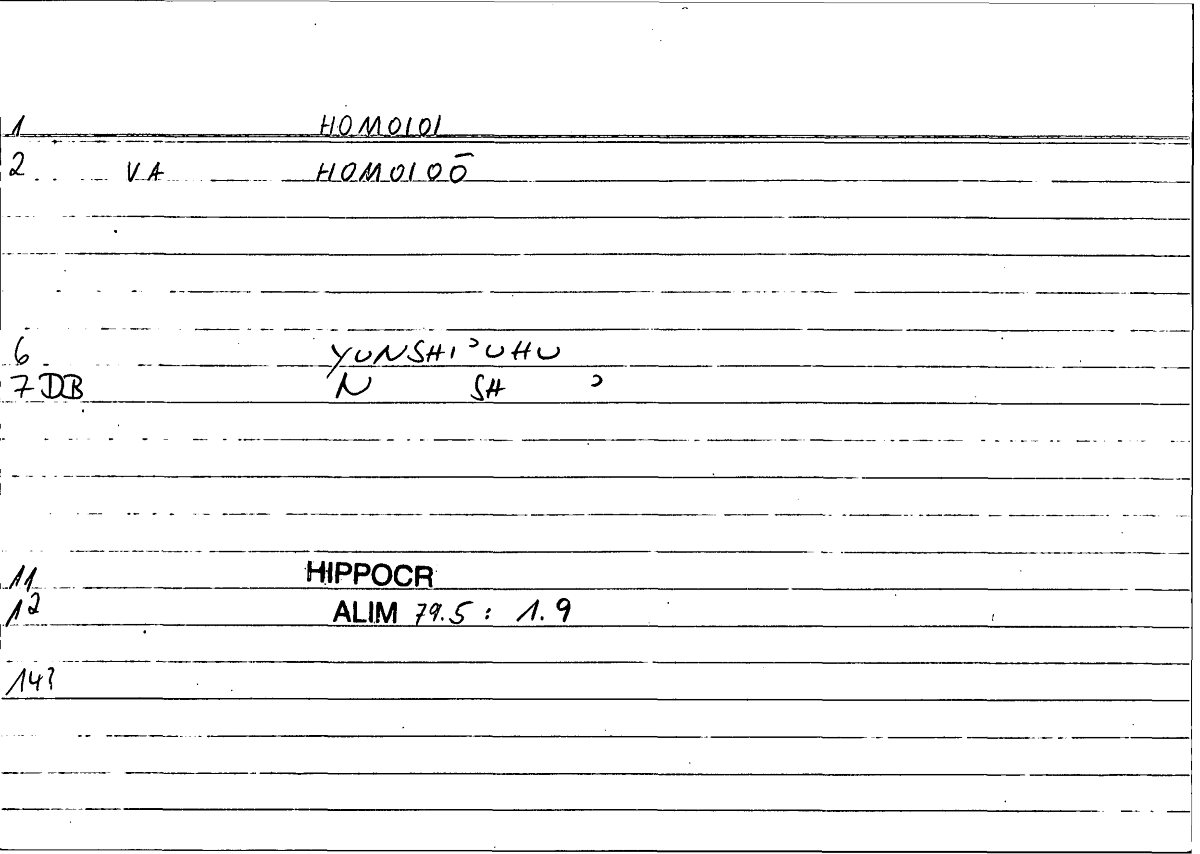 1 HOMOIOI
2 VA HOMOIOŌ
6 YUNSHIʾUHU
7 DB N SH ʾ
11 HIPPOCR
12 ALIM 79.5 : 1.9
14?